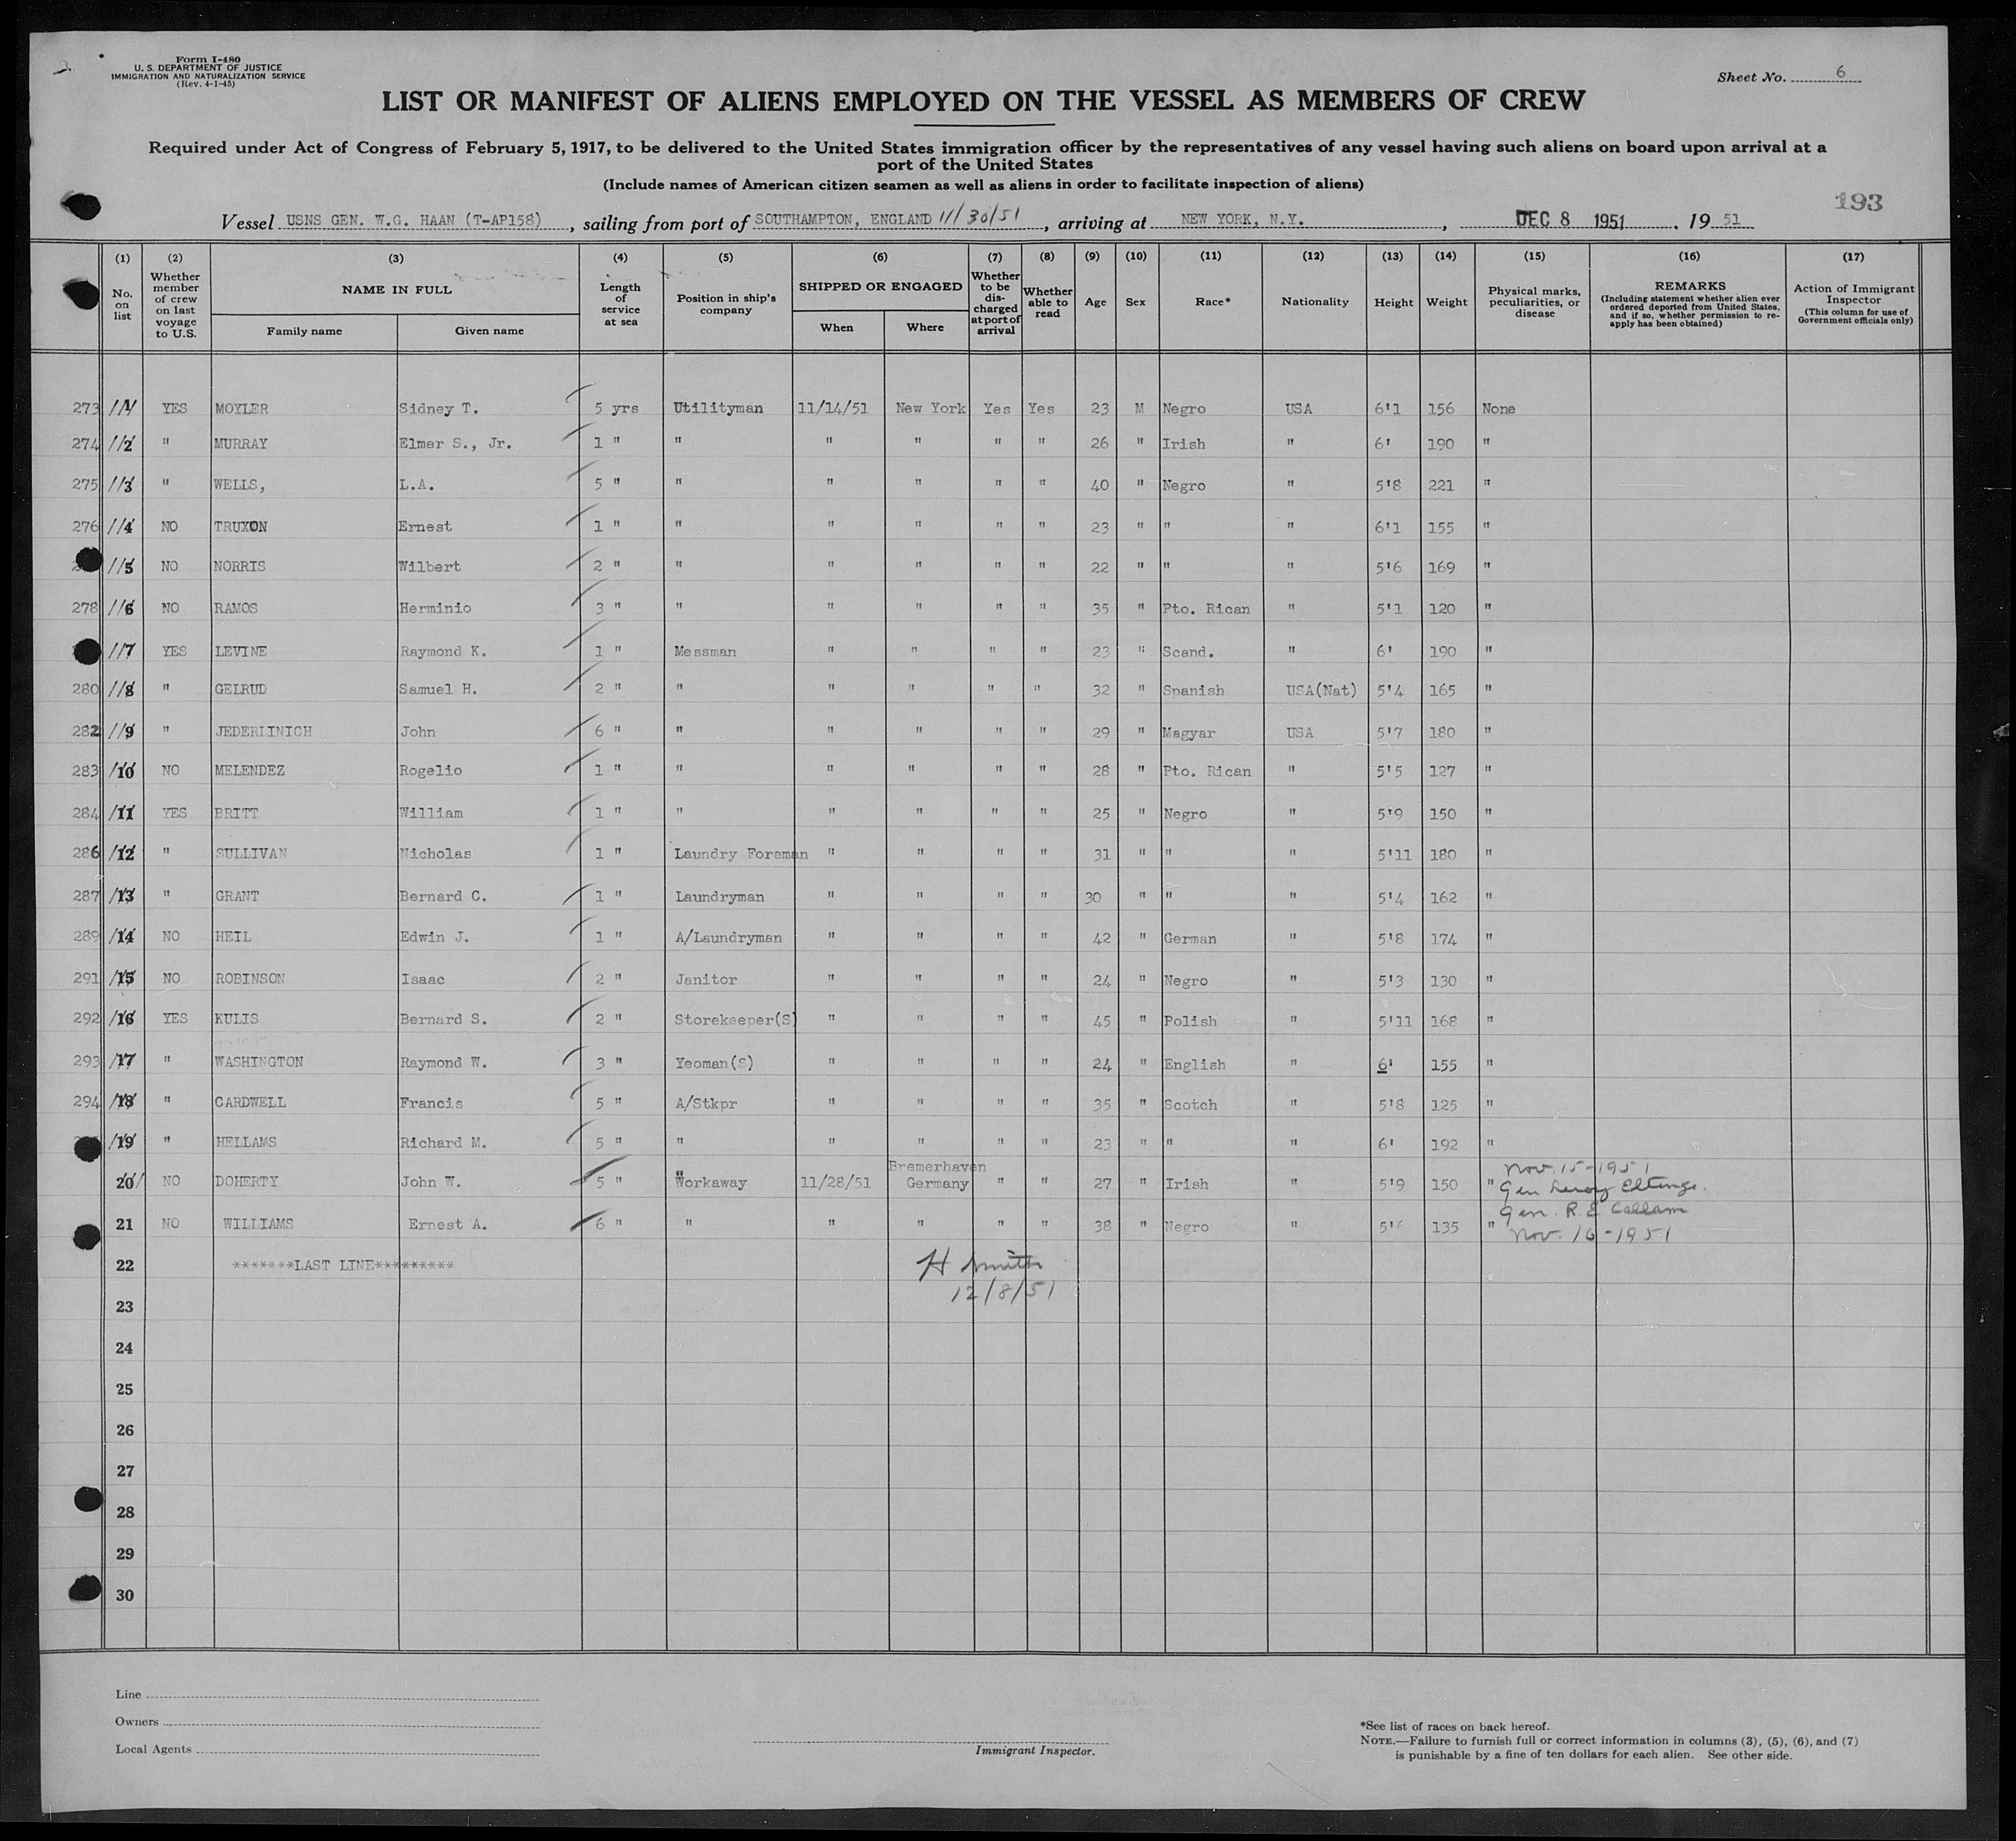 Form I-480
U. S. DEPARTMENT OF JUSTICE
IMMIGRATION AND NATURALIZATION SERVICE
(Rev. 4-1-45)
Sheet No. 6
LIST OR MANIFEST OF ALIENS EMPLOYED ON THE VESSEL AS MEMBERS OF CREW
Required under Act of Congress of February 5, 1917, to be delivered to the United States immigration officer by the representatives of any vessel having such aliens on board upon arrival at a
port of the United States
(Include names of American citizen seamen as well as aliens in order to facilitate inspection of aliens)
193
Vessel USNS GEN. W.G. HAAN (T-AP158), sailing from port of SOUTHAMPTON, ENGLAND 11/30/51, arriving at NEW YORK, N.Y., DEC 8 1951, 1951
(1) (2) (3) (4) (5) (6) (7) (8) (9) (10) (11) (12) (13) (14) (15) (16) (17)
No. on list
Whether member of crew on last voyage to U.S.
NAME IN FULL
Family name
Given name
Length of service at sea
Position in ship's company
SHIPPED OR ENGAGED
When
Where
Whether to be discharged at port of arrival
Whether able to read
Age
Sex
Race*
Nationality
Height
Weight
Physical marks, peculiarities, or disease
REMARKS
(Including statement whether alien ever ordered deported from United States, and if so, whether permission to reapply has been obtained)
Action of Immigrant Inspector
(This column for use of Government officials only)
273 1 YES MOYLER Sidney T. 5 yrs Utilityman 11/14/51 New York Yes Yes 23 M Negro USA 6'1 156 None
274 2 " MURRAY Elmer S., Jr. 1 " " " " " " 26 " Irish " 6' 190 "
275 3 " WELLS, L.A. 5 " " " " " " 40 " Negro " 5'8 221 "
276 4 NO TRUXON Ernest 1 " " " " " " 23 " " " 6'1 155 "
5 NO NORRIS Wilbert 2 " " " " " " 22 " " " 5'6 169 "
278 6 NO RAMOS Herminio 3 " " " " " " 35 " Pto. Rican " 5'1 120 "
7 YES LEVINE Raymond K. 1 " Messman " " " " 23 " Scand. " 6' 190 "
280 8 " GELRUD Samuel H. 2 " " " " " " 32 " Spanish USA(Nat) 5'4 165 "
282 9 " JEDERLINICH John 6 " " " " " " 29 " Magyar USA 5'7 180 "
283 10 NO MELENDEZ Rogelio 1 " " " " " " 28 " Pto. Rican " 5'5 127 "
284 11 YES BRITT William 1 " " " " " " 25 " Negro " 5'9 150 "
286 12 " SULLIVAN Nicholas 1 " Laundry Foreman " " " " 31 " " " 5'11 180 "
287 13 " GRANT Bernard C. 1 " Laundryman " " " " 30 " " " 5'4 162 "
289 14 NO HEIL Edwin J. 1 " A/Laundryman " " " " 42 " German " 5'8 174 "
291 15 NO ROBINSON Isaac 2 " Janitor " " " " 24 " Negro " 5'3 130 "
292 16 YES KULIS Bernard S. 2 " Storekeeper(S) " " " " 45 " Polish " 5'11 168 "
293 17 " WASHINGTON Raymond W. 3 " Yeoman(S) " " " " 24 " English " 6' 155 "
294 18 " CARDWELL Francis 5 " A/Stkpr " " " " 35 " Scotch " 5'8 125 "
19 " HELLAMS Richard M. 5 " " " " " " 23 " " " 6' 192 "
Bremerhaven Nov. 15-1951
20 NO DOHERTY John W. 5 " Workaway 11/28/51 Germany " " 27 " Irish " 5'9 150 " Gen Leroy Eltinge.
Gen. R. E Callam
21 NO WILLIAMS Ernest A. 6 " " " " " " 38 " Negro " 5'6 135 "
Nov. 16-1951
22 *******LAST LINE********* H Smith
12/8/51
23
24
25
26
27
28
29
30
Line
Owners
Local Agents
Immigrant Inspector.
*See list of races on back hereof.
NOTE.—Failure to furnish full or correct information in columns (3), (5), (6), and (7)
is punishable by a fine of ten dollars for each alien. See other side.